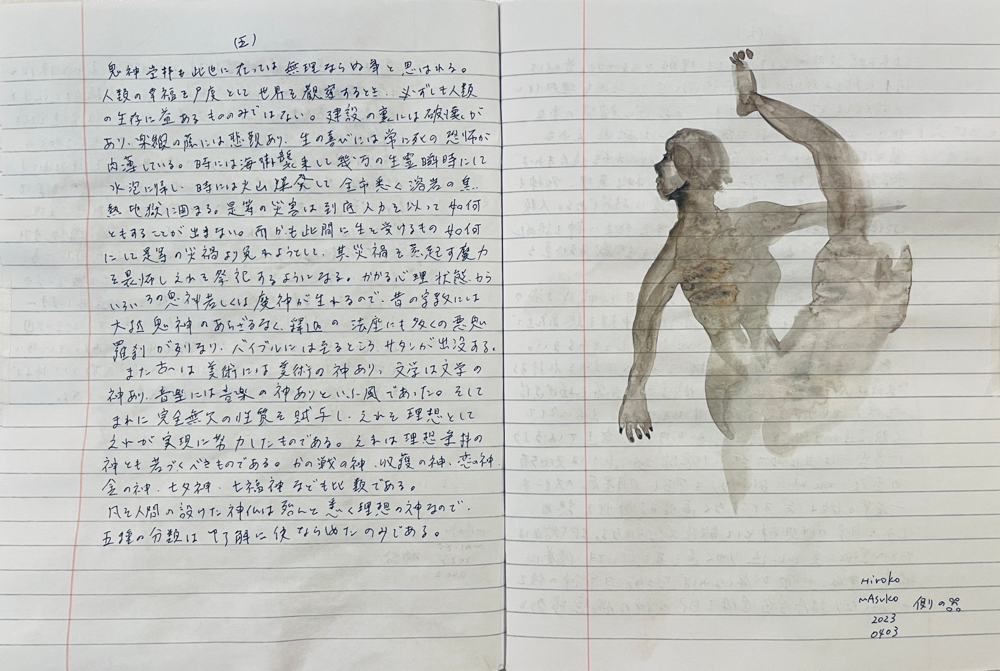 (五)
鬼神崇拝も此世に在っては無理ならぬ事と思はれる。
人類の幸福を尺度として世界を観察するとき、必ずしも人類
の生存に益あるもののみではない。建設の裏には破壊が
あり、楽観の蔭には悲観あり、生の喜びには常に死の恐怖が
内薄している。時には海嘯襲来して幾万の生霊瞬時にして
水泡に帰し、時には火山爆発して全市悉く溶岩の焦
熱地獄に固まる。是等の災害は到底人力を以って如何
ともすることが出来ない。而かも此間に生を受けるもの如何
にして是等の災禍より免れようとして、其災禍を惹起す魔力
を畏怖しこれを祭祀するようになる。かかる心理状態から
いろいろの鬼神若しくは魔神が生れるので、昔の宗教には
大抵鬼神のあらざるなく、釋迦の法座にも多くの悪鬼
羅刹が列なり、バイブルには至るところサタンが出没する。
また古へは美術には美術の神あり、文学は文学の
神あり、音楽には音楽の神ありといふ風であった。そして
これに完全無欠の性質を賦与し、これを理想として
これが実現に努力したものである。これは理想崇拝の
神とも名づくべきものである。かの戦の神、収穫の神、恋の神、
金の神、七夕神、七福神なども此類である。
凡そ人間の設けた神仏は殆んど悉く理想の神なので、
五種の分類は了解に便ならしめたのみである。
Hiroko
mAsuko
2023
0403
側の器